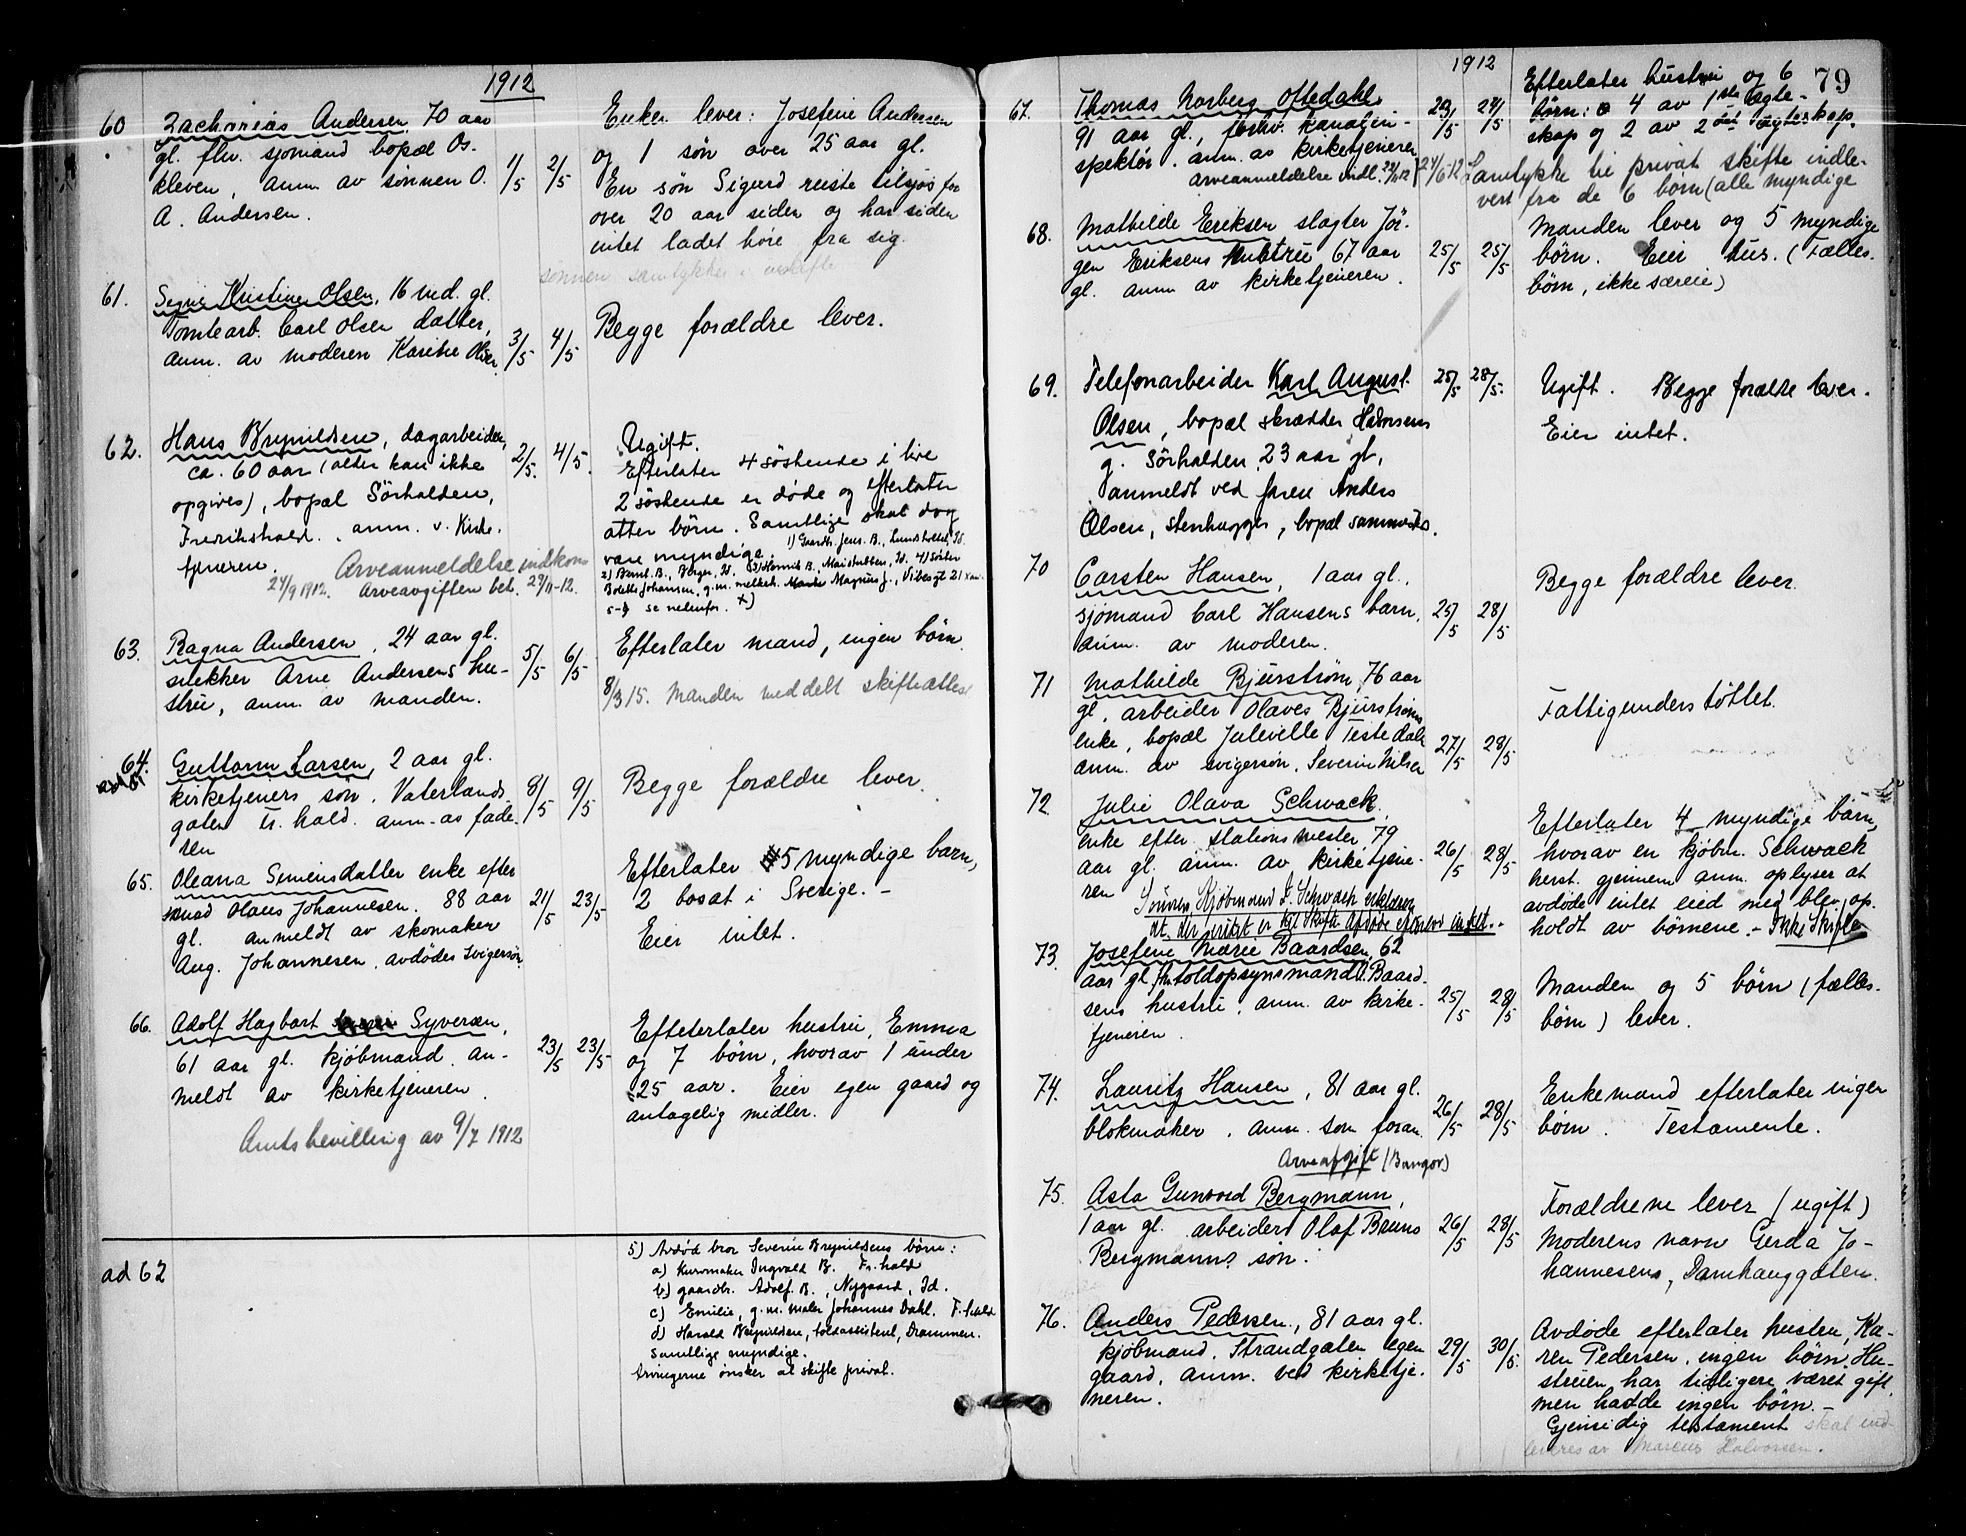 1912
60 Zacharias Andersen, 70 aar
gl. fhv. sjømand bopæl Os-
kleven, anm. av sønnen O.
A. Andersen.
1/5 2/5
Enken lever: Josefine Andersen
og 1 søn over 25 aar gl.
En søn Sigurd reiste tilsjøs for
over 20 aar siden og har siden
intet ladet høre fra sig.
sønnen samtykker i
61. Signe Kristine Olsen, 16 md. gl.
Tomtearb. Carl Olsen datter,
anm. av moderen Karine Olsen
3/5 4/5
Begge forældre lever.
62. Hans Brynildsen, dagarbeider,
ca. 60 aar (alder kan ikke
opgives), bopæl Sørhalden,
Fredrikshald., anm. v. Kirke-
tjeneren.
Arveanmeldelse indkom
24/9 1912. Arveavgiften bet. 29/11-12.
2/5. 4/5.
Ugift.
Efterlater 4 søskende i live
2 søskende er døde og efterlater
atter børn. Samtlige skal dog
være myndige. 1) Gaardbr. Jens B., Id.
2) Bernt B., Berger, Id. 3) Henrik B., Id. 4) Søster
Bolette Johansen, g.m. Magnus J.,
5-) se nedenfor. x)
63. Ragna Andersen, 24 aar gl.
snekker Arne Andersens hu-
stru, anm. av manden.
5/5 6/5
Efterlater mand, ingen børn.
8/3 15. Manden meddelt skifteattest
64. Guttorm Larsen, 2 aar gl.
kirketjeners søn. Vaterlands
gaten Fr. hald. anm. av fade-
ren
8/5 9/5
Begge forældre lever.
65. Oleana Simensdatter enke efter
Olaus Johannesen. 88 aar
gl. anmeldt av skomaker
Aug. Johannesen, avdødes svigersøn
21/5 23/5
Efterlater 5 myndige barn,
2 bosat i Sverige. -
Eier intet.
66. Adolf Hagbart Syversen,
61 aar gl. kjøbmand. an-
meldt av kirketjeneren.
Amtsbevilling av 9/7 1912
23/5 23/5
Efeterlater hustru, Emma
og 7 børn, hvorav 1 under
25 aar. Eier egen gaard og
antagelig midler.
ad 62
5) Avdød bror Severin Brynildsens børn:
a) Kurvmaker Ingvald B. Fr.hald
b) gaardbr. Adolf B., Nygaard, Id.
c) Emilie, g.m. maler Johannes Dahl. F.hald
d) Harald Brynildsen, toldassistent, Drammen.
Samtlige myndige.
Arvingerne ønsker at skifte privat.
1912
79
67. Thomas Norberg Oftedahl,
91 aar gl., forhv. kanalin-
spektør. anm. av kirketjeneren
Arveanmeldelse indl.
24/5
Efterlater hustru og 6
børn: 4 av 1ste ægte-
skap og 2 av 2det ægteskap.
Samtykke til privat skifte indle-
vert fra de 6 børn (alle myndige
68. Mathilde Eriksen slagter Jør-
gen Eriksens hustru 67 aar
gl. anm av kirketjeneren.
25/5 25/5
Manden lever og 5 myndige
børn. Eier hus. (Fælles-
børn, ikke særeie)
69. Telefonarbeider Karl August
Olsen, bopæl skrædder Halvorsens
g. Sørhalden, 23 aar gl,
anmeldt ved faren Anders
Olsen, stenhugger, bopæl sammesteds.
25/5 28/5.
Ugift. Begge forældre lever.
Eier intet.
70 Carsten Hansen, 1 aar gl.,
sjømand Carl Hansens barn,
anm. av moderen.
25/5 28/5
Begge forældre lever.
71 Mathilde Bjurstrøm, 76 aar
gl, arbeider Olaves Bjurstrøms
enke, bopæl Julevelle Tistedalen
anm. av svigersøn, Severin Nilsen
27/5 28/5
Fattigunderstøttet.
72. Julie Olava Schwack,
enke efter stationsmester, 79
aar gl. anm. av kirketjene-
ren
Sønnen, Kjøbmand Schwack erklærer
at der intet er til Skifte. Afdøde efterlod intet.-
26/5 28/5
Efterlater 4 myndige børn,
hvorav en kjøbm. Schwack
herst. gjennem anm. oplyser at
avdøde intet eied med blev op-
holdt av børnene. - Ikke Skifte
73. Josefine Marie Baardsen, 62
aar gl. toldopsynsmand Baard-
sens hustru, anm. av kirke-
tjeneren.
25/5 28/5
Manden og 5 børn (fælles-
børn) lever.
74. Lauritz Hansen, 81 aar gl.
blokmaker. anm. som foran.
Arveafgift (Bangor)
26/5 28/5
Enkemand efterlater ingen
børn. Testamente.
75. Asta Gunvord Bergmann,
1 aar gl. arbeider Olaf Bruno
Bergmanns søn.
26/5 28/5
Forældrene lever (ugift)
Moderens navn Gerda Jo-
hannesens, Damhauggaten.
76. Anders Pedersen, 81 aar gl.
kjøbmand, Strandgaten egen
gaard, anm. ved kirketje-
neren.
29/5 30/5.
Avdøde efterlater hustru, Ka-
ren Pedersen, ingen børn. Hu-
struen har tidligere været gift,
men hadde ingen børn. -
Gjensidig testament skal ind-
leveres av Marcus Halvorsen.